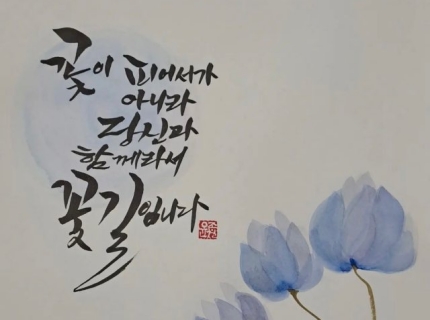 꽃이 피어서가
아니라
당신과
함께라서
꽃길입니다